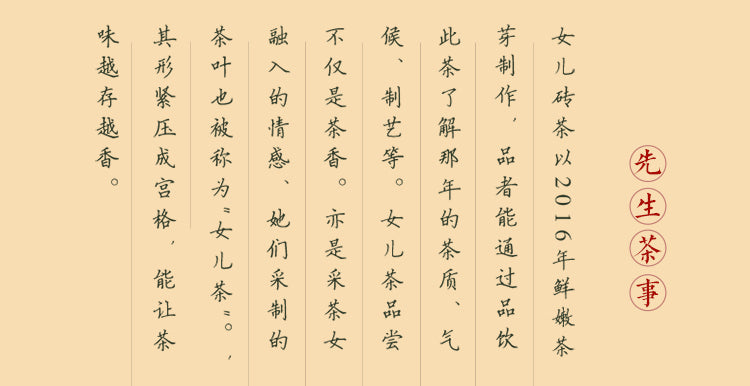 先生茶事
女儿砖茶以2016年鲜嫩茶
芽制作，品者能通过品饮
此茶了解那年的茶质、气
候、制艺等。女儿茶品尝
不仅是茶香。亦是采茶女
融入的情感、她们采制的
茶叶也被称为“女儿茶”。，
其形紧压成宫格，能让茶
味越存越香。